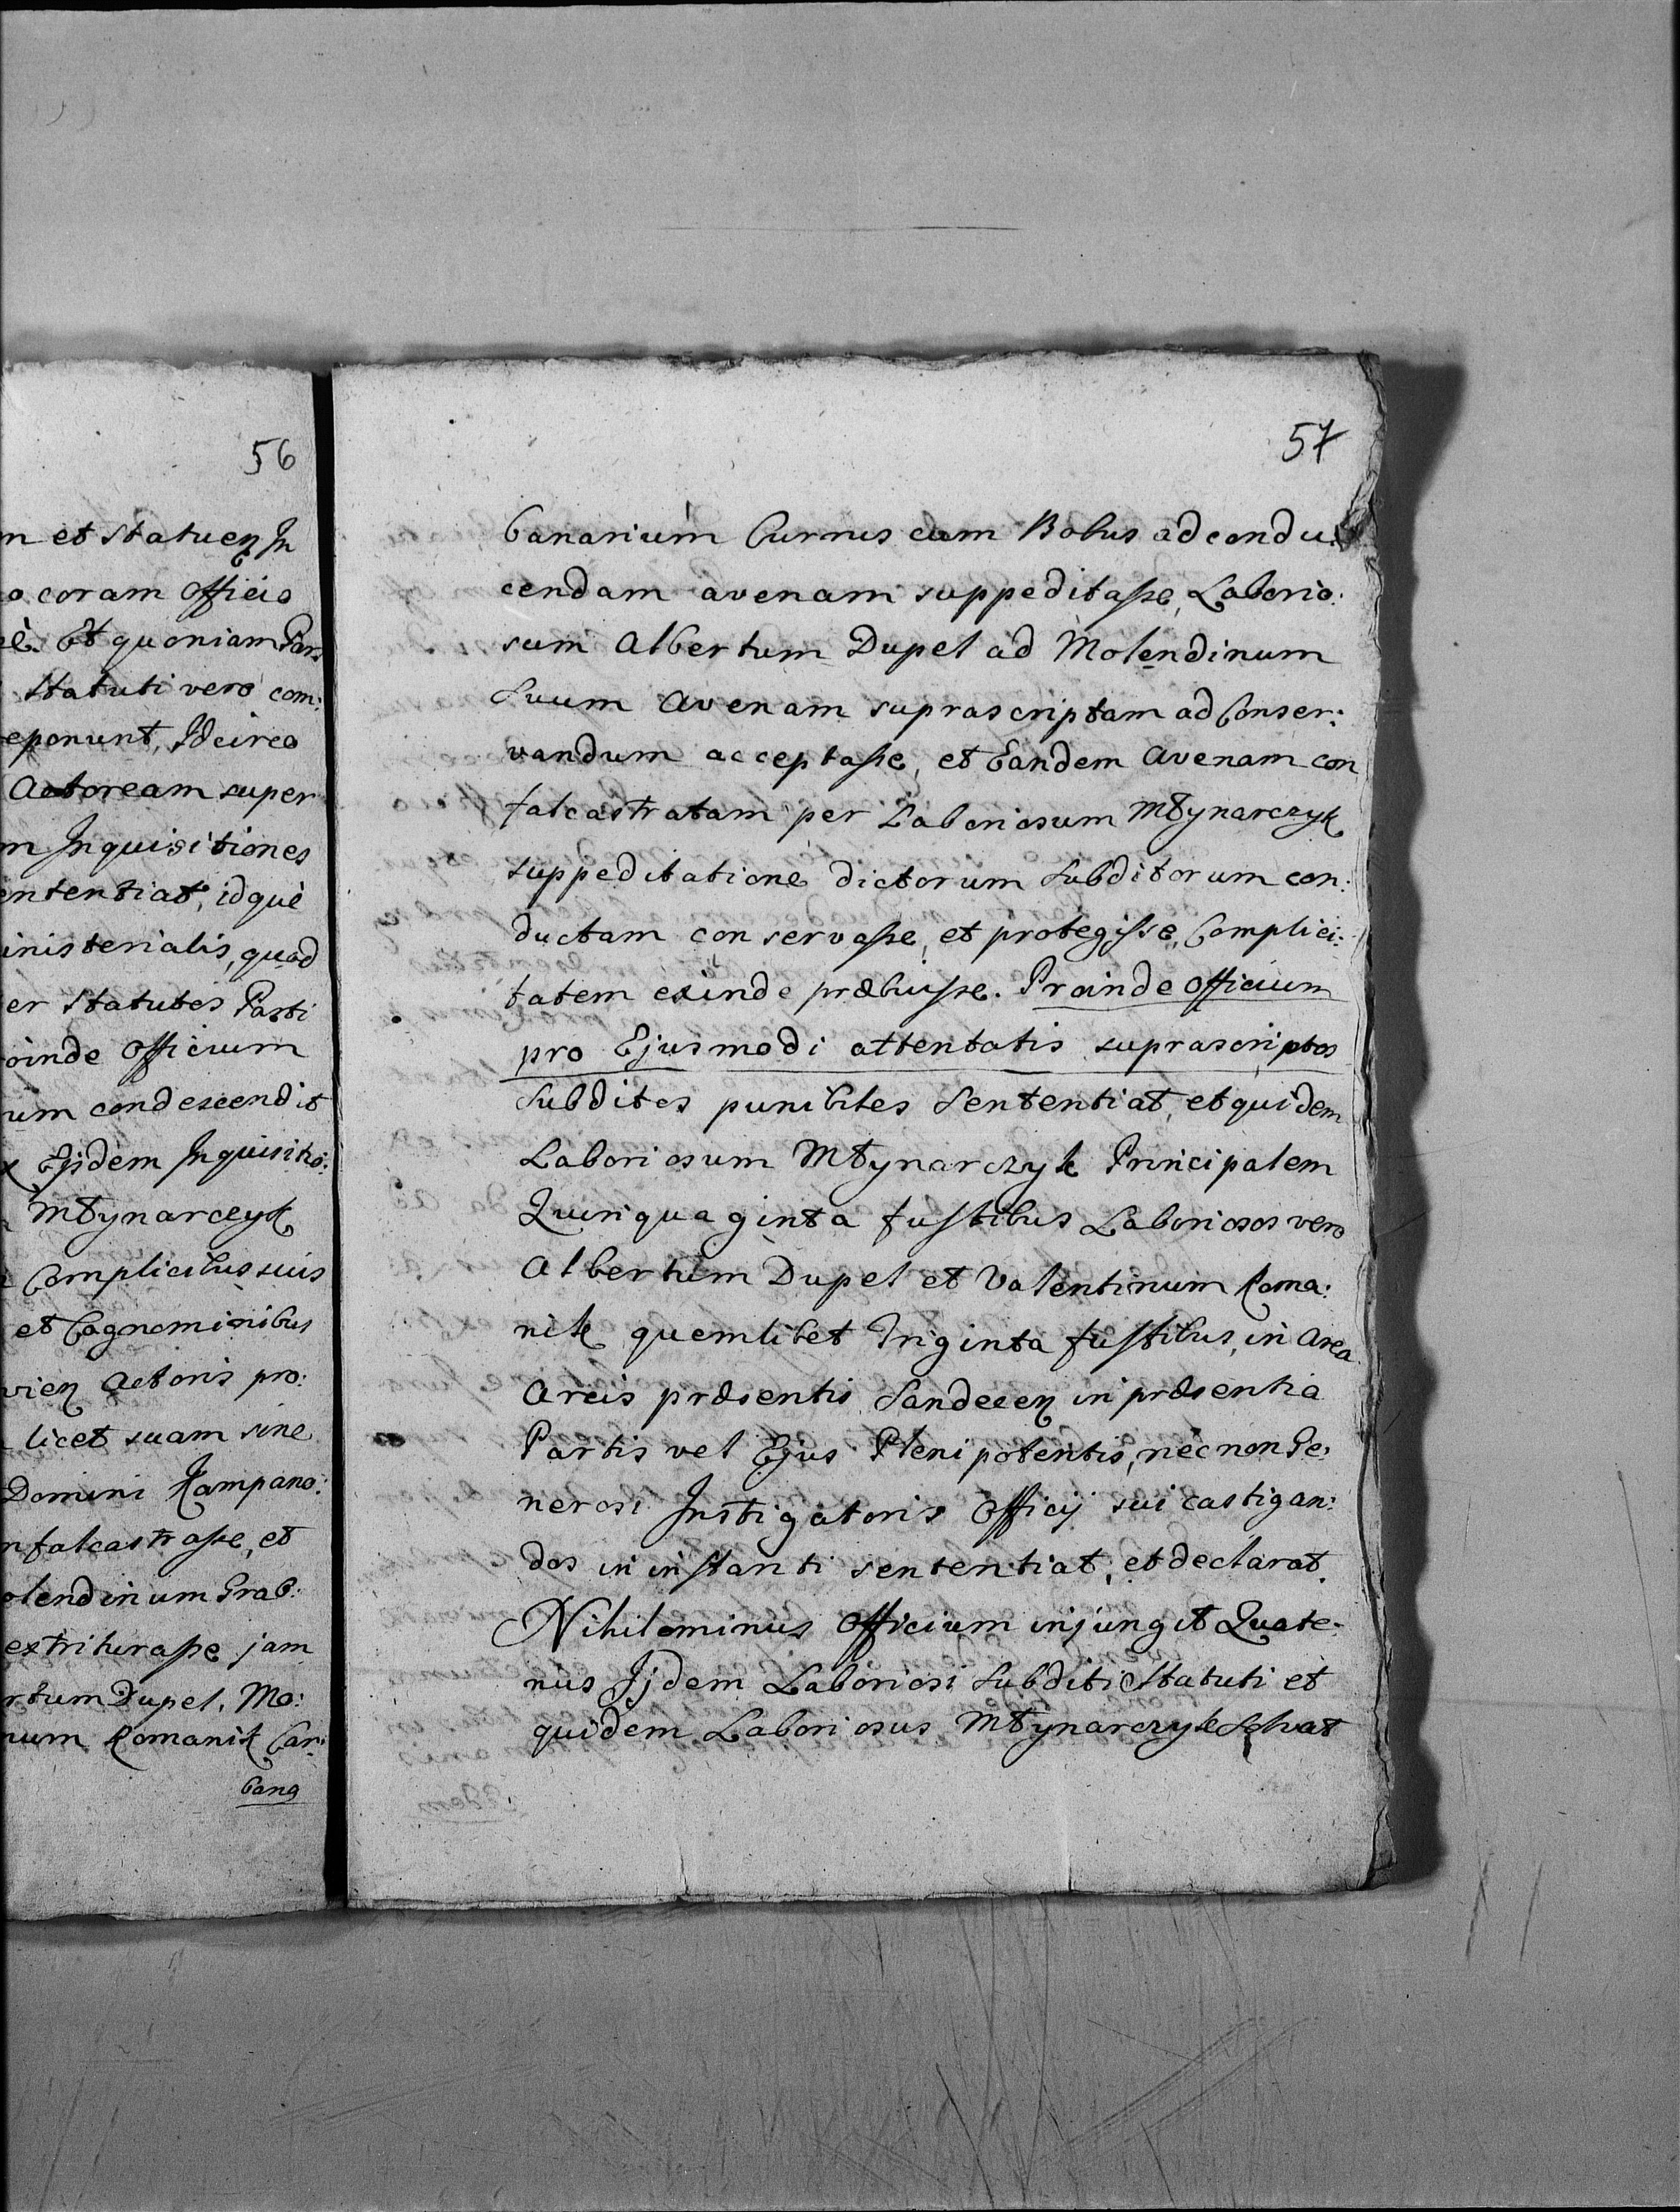 56
n et Statuen In
o coram Officio
è. Et quoniam Pars
Statuti vero com:
eponunt, Idcirco
Actoream super
m Inquisitiones
ententiat, idquè
inisterialis, quod
er Statutos Parti
oinde Officium
um condescendit
x Ejsdem Inquisitio:
Młynarczyk
Complicibus suis
et Cognominibus
vien Actoris pro:
licet suam sine
Domini Kampano:
nfalcastrasse, et
olendinum Grab:
extriturasse jam
rtum Dupel, Mo:
num Romanik Car:
bona
57
bonarium Currus cum Bobus ad condu:
cendam avenam suppeditasse, Laborio:
sum Albertum Dupel ad Molendinum
Suum Avenam suprascriptam ad Conser:
vandum acceptasse, et Eandem Avenam con
falcastratam per Laboriosum Młynarczyk
suppeditatione dictorum Subditorum con:
ductam conservasse, et protegisse, Complici:
tatem exinde præbuisse. Proinde Officium
pro Ejusmodi attentatis suprascriptos
Subditos punibiles Sententiat, et quidem
Laboriosum Młynarczyk Principalem
Quinquaginta fustibus Laboriosos vero
Albertum Dupel et Valentinum Roma:
nik quemlibet Triginta fustibus, in Area
Arcis præsentis Sandecen in præsentia
Partis vel Ejus Plenipotentis, nec non Ge:
nerosi Instigatoris Officij sui castigan:
dos in instanti sententiat, et declarat.
Nihilominus Officium injungit Quate-
nus Ijdem Laboriosi Subditi Statuti et
quidem Laboriosus Młynarczyk Solvat